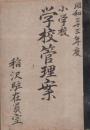 昭和二十三年度
小学校
学校管理案
稲沢駐在員室